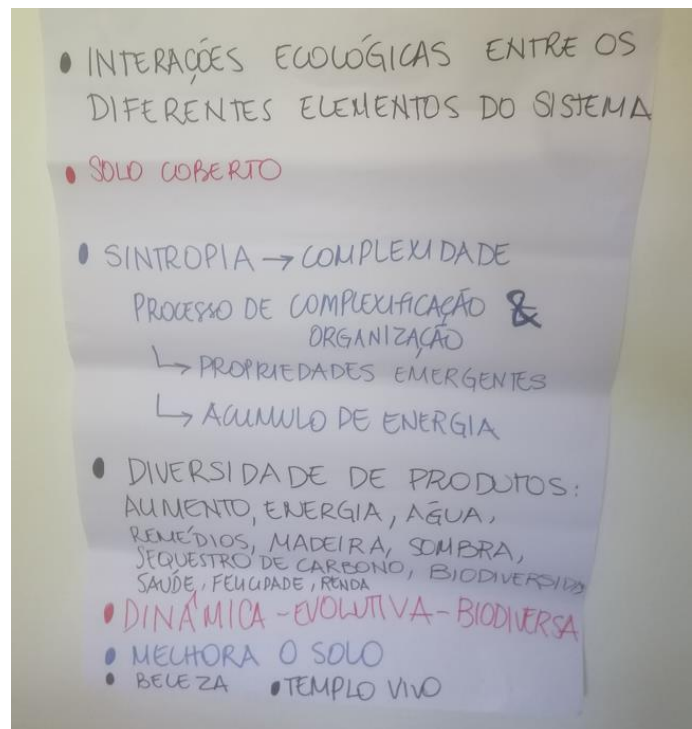 • INTERAÇÕES ECOLÓGICAS ENTRE OS
DIFERENTES ELEMENTOS DO SISTEMA
• SOLO COBERTO
• SINTROPIA → COMPLEXIDADE
PROCESSO DE COMPLEXIFICAÇÃO &
ORGANIZAÇÃO
↳ PROPRIEDADES EMERGENTES
↳ ACUMULO DE ENERGIA
• DIVERSIDADE DE PRODUTOS:
ALIMENTO, ENERGIA, ÁGUA,
REMÉDIOS, MADEIRA, SOMBRA,
SEQUESTRO DE CARBONO, BIODIVERSID
SAÚDE, FELICIDADE, RENDA
• DINÂMICA - EVOLUTIVA - BIODIVERSA
• MELHORA O SOLO
• BELEZA • TEMPLO VIVO